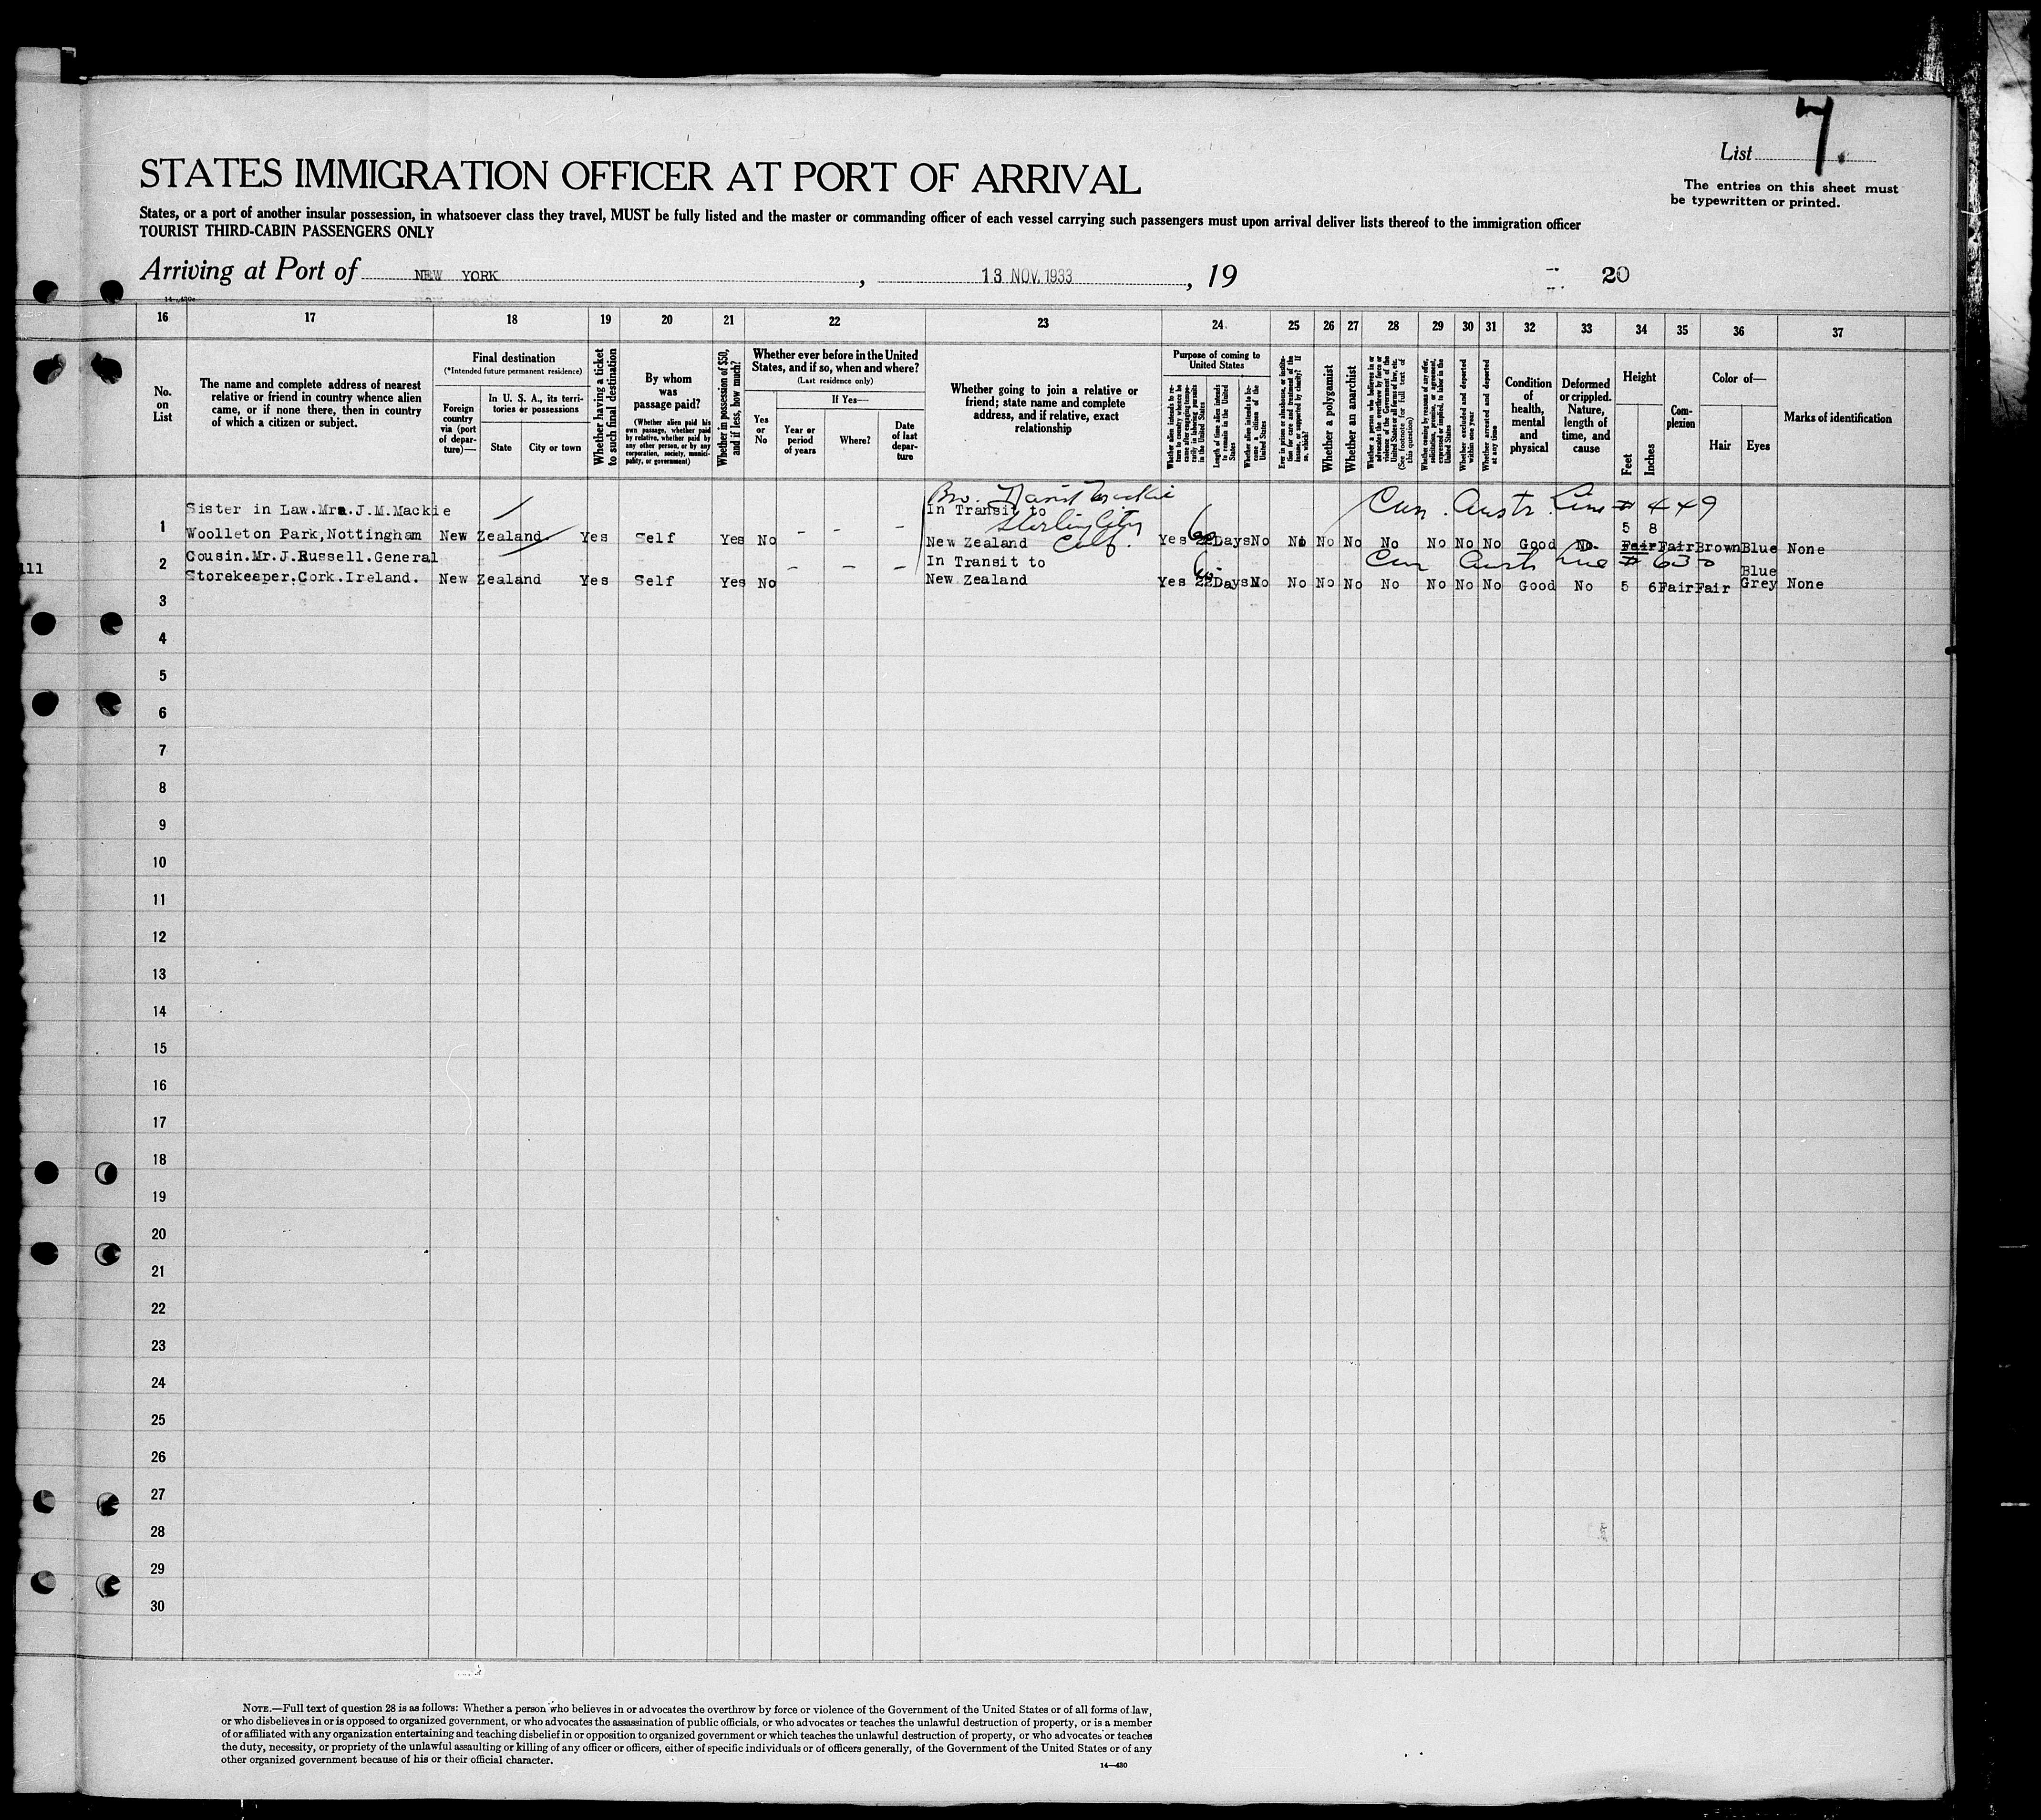 7.
List
The entries on this sheet must
be typewritten or printed.
STATES IMMIGRATION OFFICER AT PORT OF ARRIVAL
States, or a port of another insular possession, in whatsoever class they travel, MUST be fully listed and the master or commanding officer of each vessel carrying such passengers must upon arrival deliver lists thereof to the immigration officer
TOURIST THIRD-CABIN PASSENGERS ONLY
Arriving at Port of NEW YORK, 13 NOV. 1933, 19 20
16 17 18 19 20 21 22 23 24 25 26 27 28 29 30 31 32 33 34 35 36 37
No. on List
The name and complete address of nearest
relative or friend in country whence alien
came, or if none there, then in country
of which a citizen or subject.
Final destination
(*Intended future permanent residence)
Foreign country via (port of departure)—
In U. S. A., its territories or possessions
State
City or town
Whether having a ticket to such final destination
By whom was passage paid?
(Whether alien paid his own passage, whether paid by relative, whether paid by any other person, or by any corporation, society, municipality, or government)
Whether in possession of $50, and if less, how much?
Whether ever before in the United States, and if so, when and where?
(Last residence only)
Yes or No
If Yes—
Year or period of years
Where?
Date of last departure
Whether going to join a relative or
friend; state name and complete
address, and if relative, exact
relationship
Purpose of coming to United States
Whether alien intends to return to country whence he came after engaging temporarily in laboring pursuits in the United States
Length of time alien intends to remain in the United States
Whether alien intends to become a citizen of the United States
Ever in prison or almshouse, or institution for care and treatment of the insane, or supported by charity? If so, which?
Whether a polygamist
Whether an anarchist
Whether a person who believes in or advocates the overthrow by force or violence of the Government of the United States or all forms of law, etc. (See footnote for full text of this question)
Whether coming by reason of any offer, solicitation, promise, or agreement, expressed or implied, to labor in the United States
Whether excluded and deported within one year
Whether arrested and deported at any time
Condition of health, mental and physical
Deformed or crippled. Nature, length of time, and cause
Height
Feet
Inches
Complexion
Color of—
Hair
Eyes
Marks of identification
Bro. David Mackie
Sister in Law.Mrs.J.M.Mackie In Transit to Can. Austr. Line # 449
Sterling City 5 8
1 Woolleton Park,Nottingham New Zealand Yes Self Yes No - - - New Zealand Calf. Yes 60 Days No No No No No No No No Good No Fair Fair Brown Blue None
Cousin.Mr.J.Russell.General In Transit to Can Austr Line # 630
111 2 Storekeeper.Cork.Ireland. New Zealand Yes Self Yes No - - - New Zealand Yes 60 Days No No No No No No No No Good No 5 6 Fair Fair Blue Grey None
3
4
5
6
7
8
9
10
11
12
13
14
15
16
17
18
19
20
21
22
23
24
25
26
27
28
29
30
NOTE.—Full text of question 28 is as follows: Whether a person who believes in or advocates the overthrow by force or violence of the Government of the United States or of all forms of law,
or who disbelieves in or is opposed to organized government, or who advocates the assassination of public officials, or who advocates or teaches the unlawful destruction of property, or is a member
of or affiliated with any organization entertaining and teaching disbelief in or opposition to organized government or which teaches the unlawful destruction of property, or who advocates or teaches
the duty, necessity, or propriety of the unlawful assaulting or killing of any officer or officers, either of specific individuals or of officers generally, of the Government of the United States or of any
other organized government because of his or their official character.
14—430